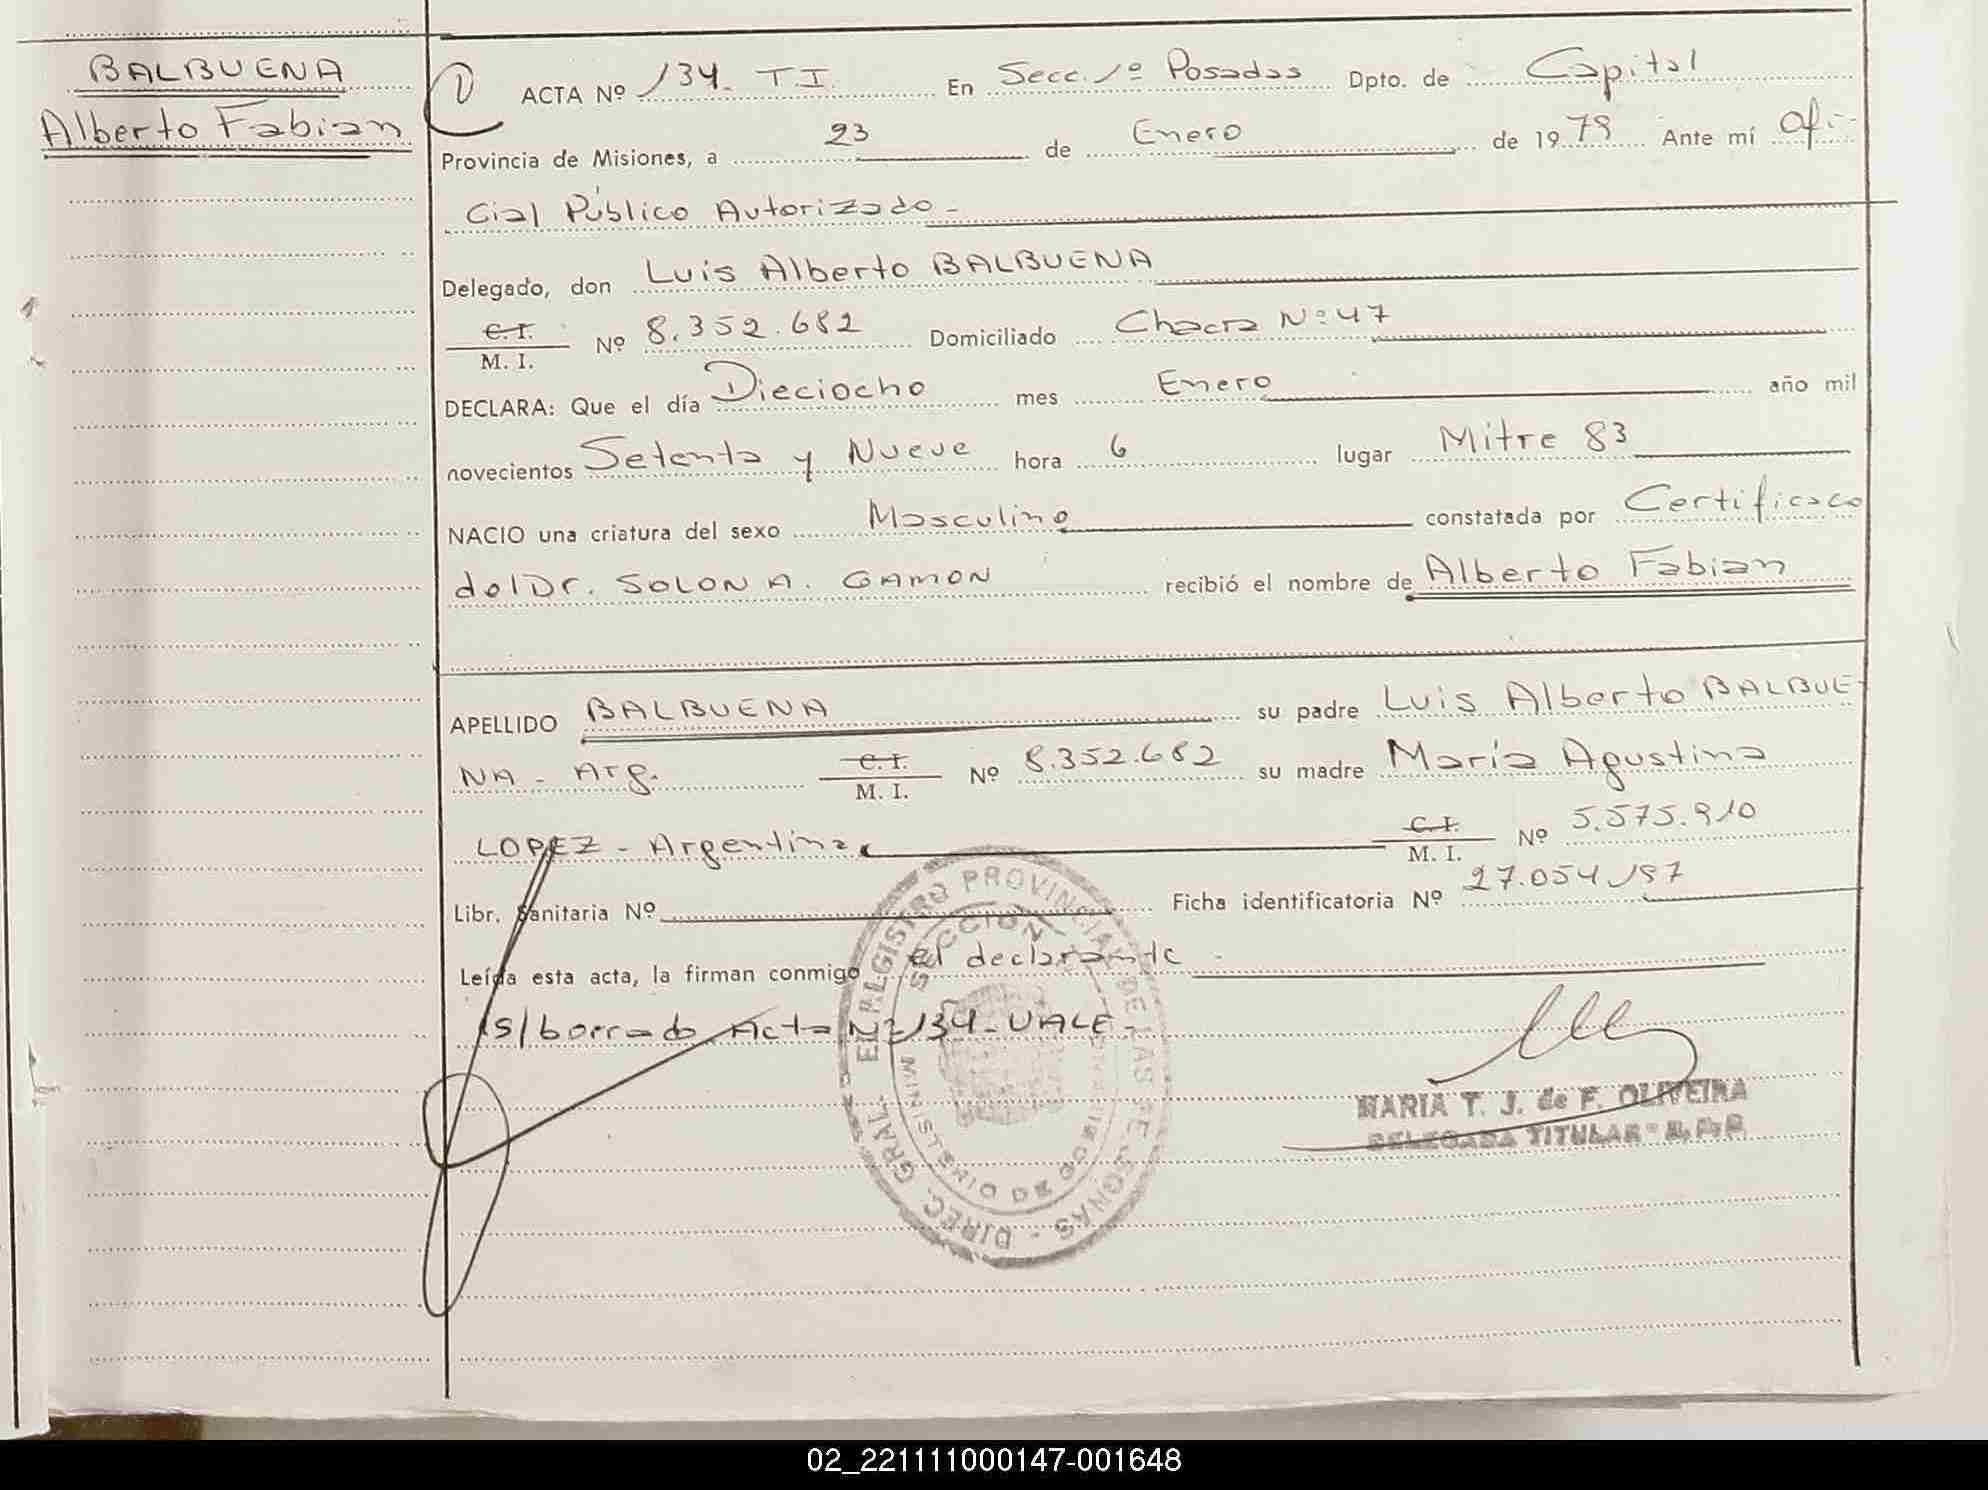 BALBUENA
Alberto Fabian
ACTA Nº 134 - T I. En Secc. 1º Posadas Dpto. de Capital
Provincia de Misiones, a 23 de Enero de 1979 Ante mí Ofi-
cial Público Autorizado -
Delegado, don Luis Alberto BALBUENA
C. I.
M. I. Nº 8.352.682 Domiciliado Chacra Nº 47
DECLARA: Que el día Dieciocho mes Enero año mil
novecientos Setenta y Nueve hora 6 lugar Mitre 83
NACIO una criatura del sexo Masculino constatada por Certificaco
del Dr. SOLON A. GAMON recibió el nombre de Alberto Fabian
APELLIDO BALBUENA su padre Luis Alberto BALBUE-
NA - Arg. C. I.
M. I. Nº 8.352.682 su madre María Agustina
LOPEZ - Argentina C. I.
M. I. Nº 5.575.910
Libr. Sanitaria Nº Ficha identificatoria Nº 27.054.197
Leída esta acta, la firman conmigo el declarante -
S/borrado Acta Nº 134 - VALE -
DIREC. GRAL. REGISTRO PROVINCIAL DE LAS PERSONAS
SECCION
MINISTERIO DE GOBIERNO
MARIA T. J. de F. OLIVEIRA
DELEGADA TITULAR - R. P. P.
02_221111000147-001648